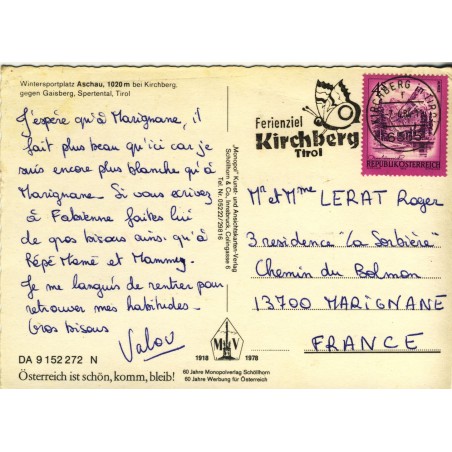 Wintersportplatz Aschau, 1020 m bei Kirchberg,
gegen Gaisberg, Spertental, Tirol
J'espère qu'à Marignane, il
fait plus beau qu'ici car je
suis encore plus blanche qu'à
Marignane. Si vous écrivez
à Fabienne faites lui
de gros bisous ainsi qu'à
Pépé Mamé et Mammy.
Je me languis de rentrer pour
retrouver mes habitudes.
Gros bisous
Valou
DA 9 152 272 N
Österreich ist schön, komm, bleib!
"Monopol" Kunst- und Ansichtskarten-Verlag
Schöllhorn & Co., Innsbruck, Colingasse 6
Tel. Nr. 05222/29816
M V
1918 1978
60 Jahre Monopolverlag Schöllhorn
60 Jahre Werbung für Österreich
Ferienziel
Kirchberg
Tirol
KIRCHBERG in TIROL
6365
REPUBLIK ÖSTERREICH
Mr et Mme LERAT Roger
3 residence "La Sorbière"
Chemin du Bolmon
13700 MARIGNANE
FRANCE